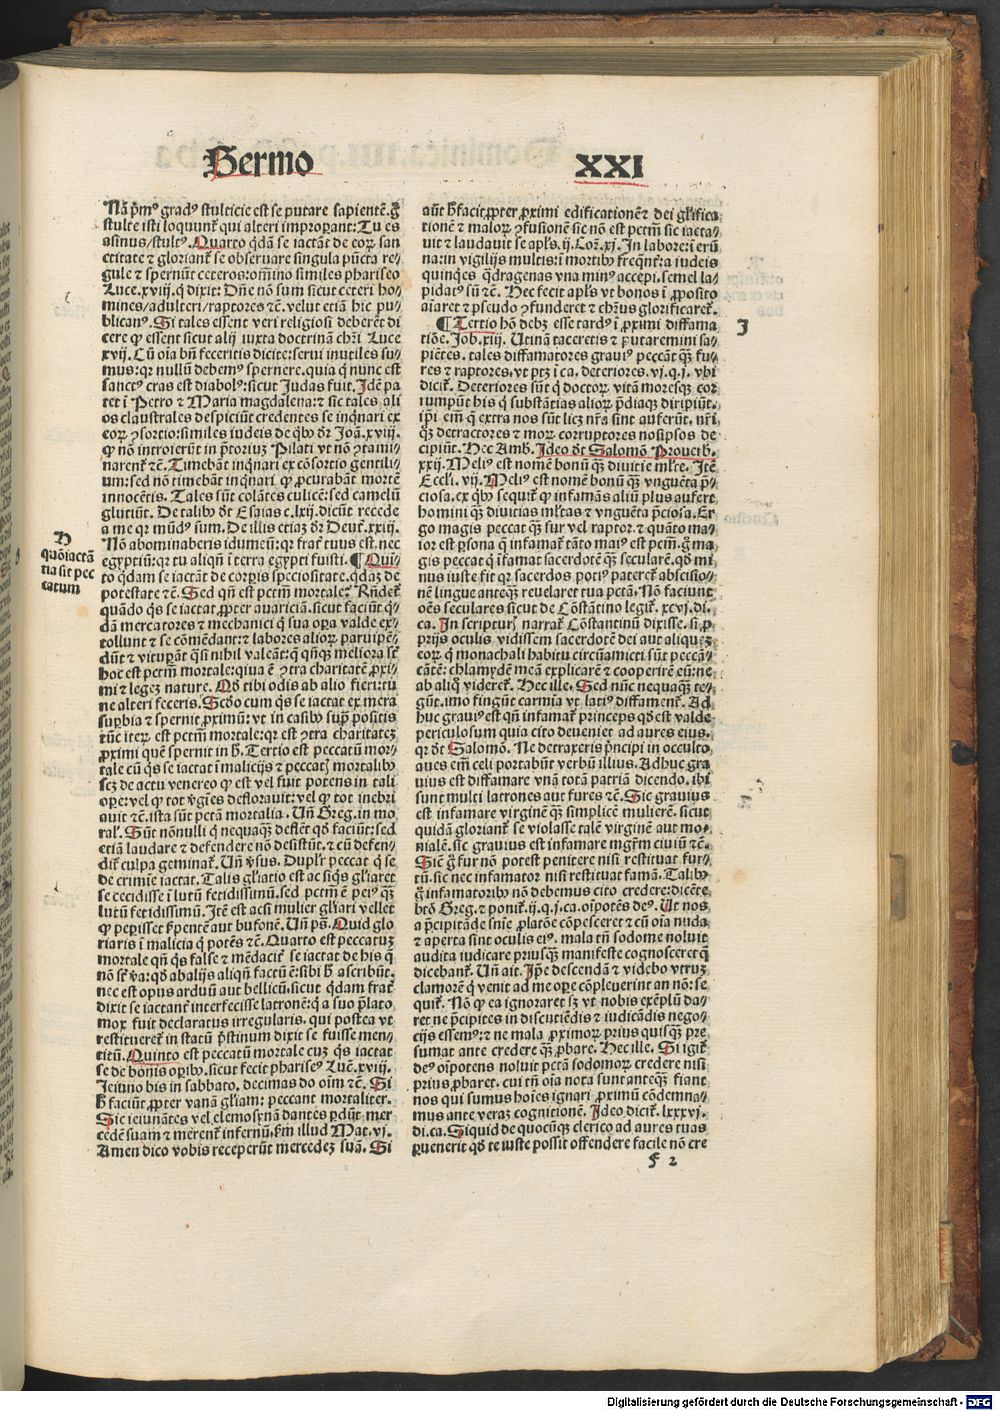 Sermo XXI
Nã p̃mꝰ gradꝰ stulticie est se putare sapientẽ. g̃
stulte isti loquunt̃ qui alteri improꝑant: Tu es
asinus/stultꝰ. Quarto q̃dã se iactãt de eoꝝ san
ctitate ⁊ gloriant̃ se obseruare singula pũcta re⸗
gule ⁊ spernũt ceteros: om̃ino similes phariseo
Luce.xviij. q̃ dixit: Dñe nõ sum sicut ceteri ho⸗
mines/adulteri/raptores ⁊c̃. velut etiã hic pu⸗
blicanꝰ. Si tales essent veri religiosi deberẽt di
cere ꝙ essent sicut alij iuxta doctrinã chr̃i Luce
xvij. Cũ oĩa bñ feceritis dicite: serui inutiles su⸗
mus: qr nullũ debemꝰ spernere. quia q̃ nunc est
sanctꝰ cras est diabolꝰ: sicut Judas fuit. Idẽ pa
tet ĩ Petro ⁊ Maria magdalena: ⁊ sic tales ali
os claustrales despiciũt credentes se inq̃nari ex
eoꝝ ꝯsortio: similes iudeis de qb̃ꝰ dr̃ Joã.xviij.
ꝙ nõ introierũt in p̃toriuꝫ Pilati vt nõ ꝯtami⸗
narent̃ ⁊c̃. Timebãt inq̃nari ex cõsortio gentili⸗
um: sed nõ timebãt inq̃nari q̃ ꝓcurabãt mortẽ
innocẽtis. Tales sũt colãtes culicẽ: sed camelũ
glutiũt. De talibꝰ dt̃ Esaias c.lxij. dicũt recede
a me qr mũdꝰ sum. De illis etiaꝫ dr̃ Deut̃.xxiij.
Nõ abominaberis idumeũ: qꝛ frat̃ tuus est. nec
egyptiũ: qꝛ tu aliqñ ĩ terra egypti fuisti. ¶ Qui⸗
to q̃dam se iactãt de corꝑis speciositate. q̃daꝫ de
potestate ⁊c̃. Sed qñ est pctm̃ mortale? Rñdet̃
quãdo q̃s se iactat ꝓpter auariciã. sicut faciũt q̃⸗
dã mercatores ⁊ mechanici q̃ sua oꝑa valde ex⸗
tollunt ⁊ se cõmẽdant: ⁊ labores alioꝝ paruipẽ⸗
dũt ⁊ vituꝑãt q̃si nihil valeãt: q̃ qñqꝫ meliora st̃
hoc est pctm̃ mortale: quia ẽ ꝯtra charitatẽ ꝓxi⸗
mi ⁊ legeꝫ nature. Qð tibi odis ab alio fieri: tu
ne alteri feceris. Scðo cum q̃s se iactat ex mera
suꝑbia ⁊ spernit ꝓximũ: vt in casibꝰ supͣ positis
tũc iteꝝ est pctm̃ mortale: qꝛ est ꝯtra charitateꝫ
ꝓximi quẽ spernit in ħ. Tertio est peccatũ mor⸗
tale cũ q̃s se iactat ĩ malicijs ⁊ peccat̃ mortalibꝰ
scꝫ de actu venereo ꝙ est vel fuit potens in tali
oꝑe: vel ꝙ tot ṽgĩes deflorauit: vel ꝙ tot inebri
auit ⁊c̃. ista sũt pctã mortalia. Uñ Greg. in mo
ral̃. Sũt nõnulli q̃ nequaqꝫ deflẽt qð faciũt: sed
etiã laudare ⁊ defendere nõ desistũt. ⁊ cũ defen⸗
dit̃ culpa geminat̃. Uñ ṽsus. Dupl̃r peccat q̃ se
de crimĩe iactat. Talis gl̃iatio est ac siq̃s gl̃iaret
se cecidisse ĩ lutũ fetidissimũ. sed pctm̃ ẽ peiꝰ q̃ꝫ
lutũ fetidissimũ. Itẽ est acsi mulier gl̃iari vellet
ꝙ peꝑisset ẜpentẽ aut bufonẽ. Uñ ps̃. Quid glo
riaris ĩ malicia q̃ potẽs ⁊c̃. Quarto est peccatuꝫ
mortale qñ q̃s false ⁊ mẽdacit̃ se iactat de his q̃
nõ st̃ ṽa: qð ab alijs aliqñ factũ ẽ: sibi ħ ascribũt.
nec est opus arduũ aut bellicũ. sicut q̃dam frat̃
dixit se iactant̃ interfecisse latronẽ: q̃ a suo p̃lato
mox fuit declaratus irregularis. qui postea vt
restitueret̃ in statũ p̃stinum dixit se fuisse men⸗
titũ. Quinto est peccatũ mortale cuꝫ q̃s iactat
se de bonis oꝑibꝰ. sicut fecit phariseꝰ Luc̃.xviij.
Jeiuno bis in sabbato. decimas do oĩm ⁊c̃. Si
ħ faciũt ꝓpter vanã gl̃iam: peccant mortaliter.
Sic ieiunãtes vel elemosynã dantes ꝑdũt mer
cedẽ suam ⁊ merent̃ infernũ. ẜm illud Mat.vj.
Amen dico vobis receperũt mercedeꝫ suã. Si
D
quõ iactã
tia sit pec
catum
aũt ħ facit ꝓpter ꝓximi edificationẽ ⁊ dei gl̃ifica
tionẽ ⁊ maloꝝ ꝯfusionẽ sic nõ est pctm̃ sic iacta⸗
uit ⁊ laudauit se apl̃s. ij. Cor̃.xj. In labore: ĩ erũ
na: in vigilijs multis: ĩ mortibꝰ freq̃nt̃: a iudeis
quinq̃es q̃dragenas vna minꝰ accepi. semel la⸗
pidatꝰ sũ ⁊c̃. Hec fecit apl̃s vt bonos ĩ ꝓposito
aĩaret ⁊ pseudo ꝯfunderet ⁊ chr̃us glorificaret̃.
¶ Tertio hõ debꝫ esse tardꝰ ĩ ꝓximi diffama
tiõe. Job.xiij. Utinã taceretis ⁊ putaremini sa⸗
piẽtes. tales diffamatores grauiꝰ peccãt q̃ꝫ fu⸗
res ⁊ raptores. vt ptꝫ ĩ ca. deteriores. vj. q̃. j. vbi
dicit̃. Deteriores sũt q̃ doctoꝝ vitã moresqꝫ cor
rumpũt his q̃ substãtias alioꝝ p̃diaqꝫ diripiũt.
ip̃i em̃ q̃ extra nos sũt licꝫ nr̃a sint auferũt. nr̃i
q̃ꝫ detractores ⁊ moꝝ corruptores nosip̃sos de
cipiũt. Hec Amb. Ideo dt̃ Salomõ Prouerb.
xxij. Meliꝰ est nomẽ bonũ q̃ꝫ diuitie ml̃te. Itẽ
Eccl̃i. vij. Meliꝰ est nomẽ bonũ q̃ꝫ vnguẽta p̃⸗
ciosa. ex qb̃ꝰ sequit̃ ꝙ infamãs aliũ plus aufere
homini q̃ꝫ diuitias ml̃tas ⁊ vnguẽta p̃ciosa. Er
go magis peccat q̃ꝫ fur vel raptor. ⁊ quãto ma⸗
ior est ꝑsona q̃ infamat̃ tãto maiꝰ est pctm̃. g̃ ma
gis peccat q̃ ĩfamat sacerdotẽ q̃ꝫ secularẽ. qð mi
nus iuste fit qꝛ sacerdos potiꝰ pateret̃ abscisio⸗
nẽ lingue anteq̃ꝫ reuelaret tua pctã. Nõ faciunt
oẽs seculares sicut de Cõstãtino legit̃. xcvj. di.
ca. In scripturꝭ narrat̃ Cõstantinũ dixisse. si ꝓ
prijs oculis vidissem sacerdotẽ dei aut aliqueꝫ
eoꝝ q̃ monachali habitu circũamicti sũt peccã⸗
cãtẽ: chlamydẽ meã explicarẽ ⁊ cooperirẽ eũ: ne
ab aliq̃ videret̃. Hec ille. Sed nũc nequaqꝫ te⸗
gũt. imo fingũt carmĩa vt latiꝰ diffament̃. Ad
huc grauiꝰ est qñ infamat̃ princeps qð est valde
periculosum quia cito deueniet ad aures eius.
qꝛ dt̃ Salomõ. Ne detraxeris p̃ncipi in occulto
aues em̃ celi portabũt verbũ illius. Adhuc gra
uius est diffamare vnã totã patriã dicendo. ibi
sunt multi latrones aut fures ⁊c̃. Sic grauius
est infamare virginẽ q̃ꝫ simplicẽ mulierẽ. sicut
quidã gloriant̃ se violasse talẽ virginẽ aut mo⸗
nialẽ. sic grauius est infamare mgr̃m ciuiũ ⁊c̃.
Sic̃ g̃ fur nõ potest penitere nisi restituat fur⸗
tũ. sic nec infamator nisi restituat famã. Talibꝰ
g̃ infamatoribꝰ nõ debemus cito credere: dicẽte
btõ Greg. ⁊ ponit̃. ij. q̃. j. ca. oĩpotẽs deꝰ. Ut nos
a p̃cipitãde snĩe ꝓlatõe cõpesceret ⁊ cũ oĩa nuda
⁊ aperta sint oculis eiꝰ. mala tñ sodome noluit
audita iudicare priusqꝫ manifeste cognosceret q̃
dicebant̃. Uñ ait. Ip̃e descendã ⁊ videbo vtruꝫ
clamorẽ q̃ venit ad me oꝑe cõpleuerint an nõ: se
quit̃. Nõ ꝙ ea ignoraret sꝫ vt nobis exẽplũ da⸗
ret ne p̃cipites in discutiẽdis ⁊ iudicãdis nego⸗
cijs essemꝰ: ⁊ ne mala ꝓximoꝝ prius quisqꝫ pre
sumat ante credere q̃ꝫ ꝓbare. Hec ille. Si igit̃
deꝰ oĩpotens noluit pctã sodomoꝝ credere nisi
prius ꝓbaret. cui tñ oĩa nota sunt anteqꝫ fiant
nos qui sumus hoĩes ignari ꝓximũ cõdemna⸗
mus ante veraꝫ cognitionẽ. Ideo dicit̃. lxxxvj.
di. ca. Siquid de quocũqꝫ clerico ad aures tuas
ꝑuenerit qð te iuste possit offendere facile nõ cre
3
f 2
Digitalisierung gefördert durch die Deutsche Forschungsgemeinschaft - DFG